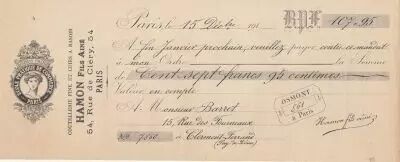 COUTELLERIE FINE ET CUIRS A RASOIR
HAMON FILS AINÉ
54, Rue de Cléry, 54
PARIS
Paris, 15 Décbre 191 B.P.F. 107-95
A fin Janvier prochain, veuillez payer contre ce mandat
à mon Ordre la Somme
de Cent sept francs 95 centimes.
Valeur en compte
A Monsieur Barret
15 Rue des Fourneaux
No 7560 à Clermont-Ferrand
(Puy de Dôme)
OSMONT
à Paris
Hamon fils aîné